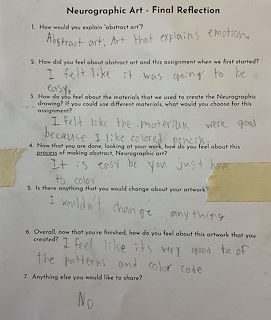 Neurographic Art - Final Reflection
1. How would you explain "abstract art"?
Abstract art: Art that explains emotion.
2. How did you feel about abstract art and this assignment when we first started?
I felt like it was going to be
easy.
3. How do you feel about the materials that we used to create the Neurographic
drawing? If you could use different materials, what would you choose for this
assignment?
I felt like the materials were good
because I like colored pencils.
4. Now that you are done, looking at your work, how do you feel about this
process of making abstract, Neurographic art?
It is easy bc you just have
to color
5. Is there anything that you would change about your artwork?
I wouldn't change anything
6. Overall, now that you're finished, how do you feel about this artwork that you
created?
I feel like its very good bc of
the patterns and color code
7. Anything else you would like to share?
No